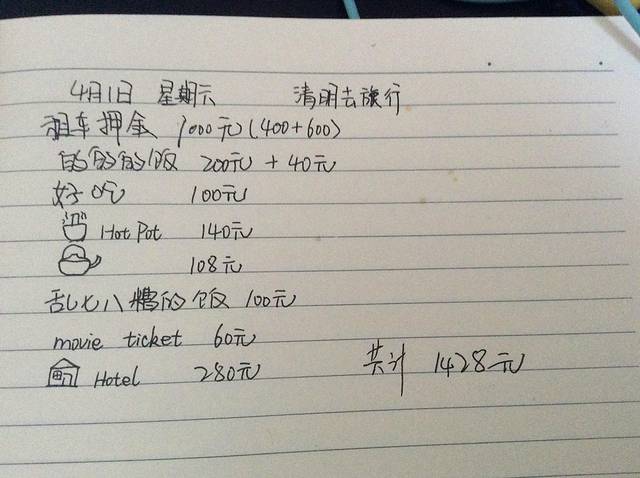 4月1日 星期六 清明去旅行
租车押金 1000元(400+600)
的的的饭 200元 + 40元
好吃 100元
Hot Pot 140元
108元
乱七八糟的饭 100元
movie ticket 60元
Hotel 280元 共计 1428元